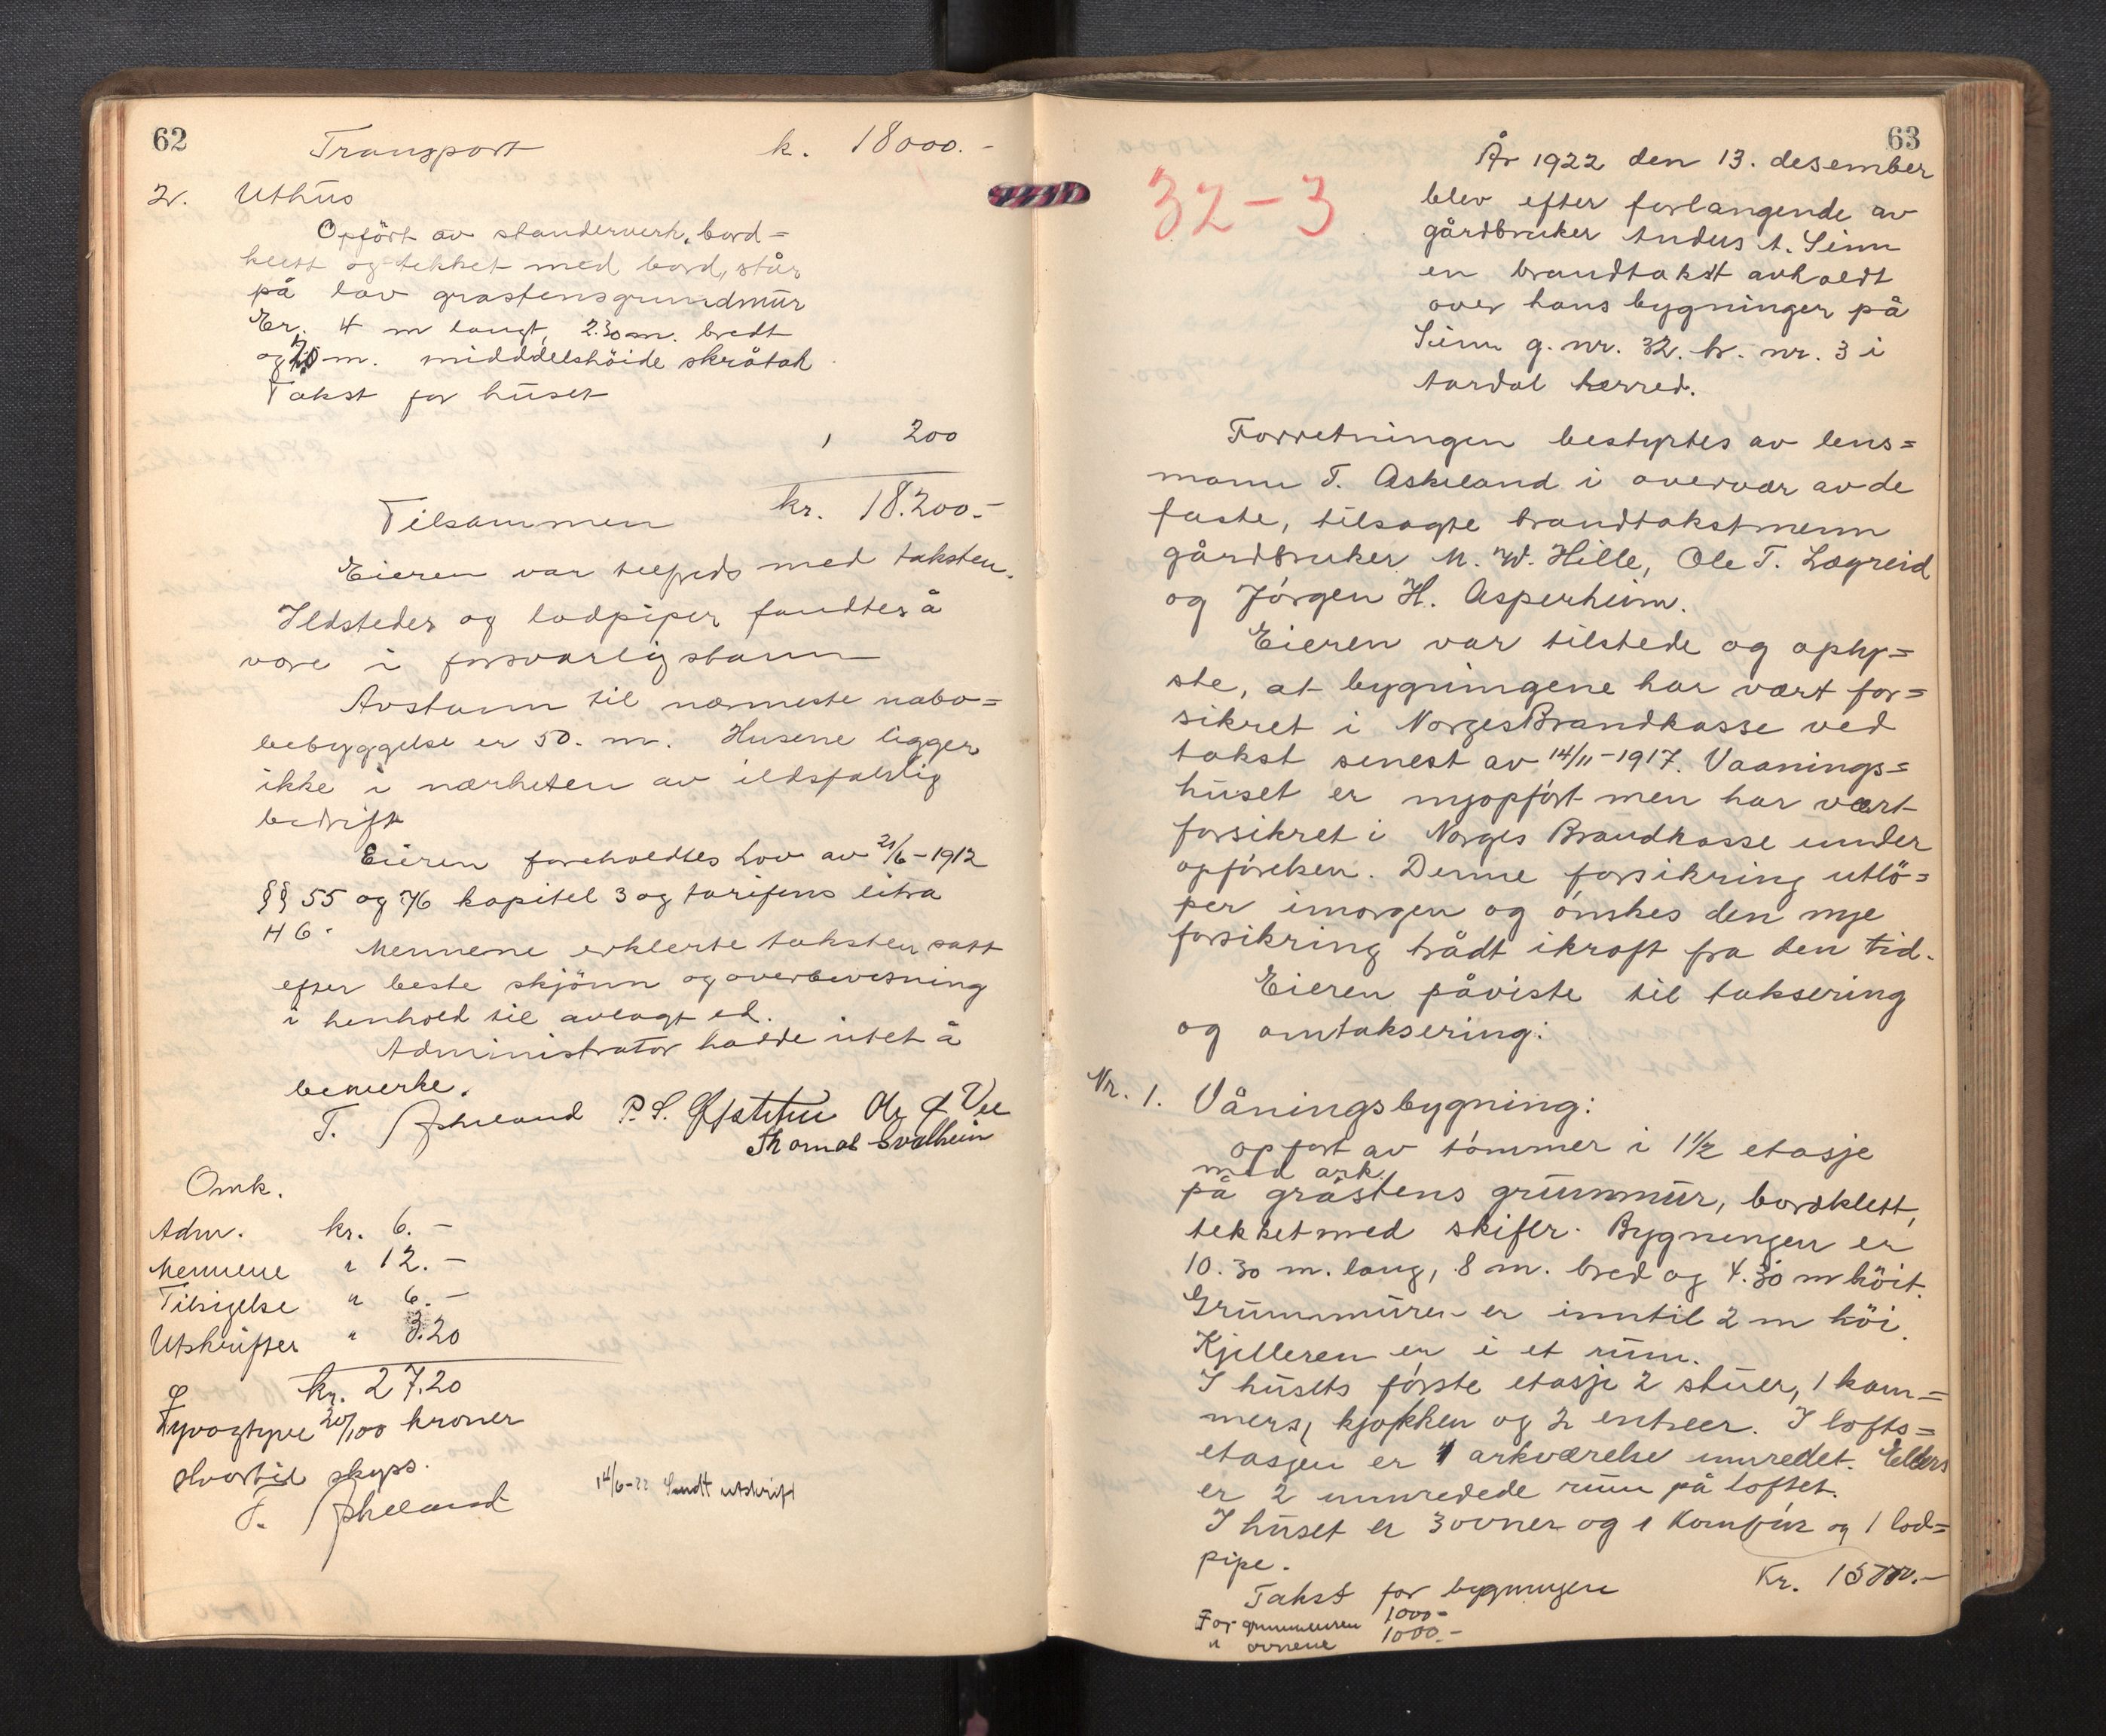 62
Transport k. 18000.-
2. Uthus
Opfört av standerverk, bord=
klett og tekket med bord, står
på lav gråstensgrundmur
Er. 4 m langt, 2.30 m. bredt
og m. midddelshöide skråtak
Takst for huset
" 200
Tilsammen kr. 18.200.-
Eieren var tilfreds med taksten.
Ildsteder og lodpiper fandtes å
være i forsvarlig stann
Avstann til nærmeste nabo=
bebyggelse er 50. m. Husene ligger
ikke i nærheten av ildsfarlig
bedrift
Eieren foreholdtes Lov av 21/6-1912
§§ 55 og 76 kapitel 3 og tarifens litra
H 6.
Mennene erklerte taksten satt
efter beste skjönn og overbevisning
i henhold til avlagt ed.
Administrator hadde intet å
bemerke.
T. Askeland P. S. Ole J Vee
Thomas Svalheim
Omk.
Adm. kr. 6.-
Mennene " 12.-
Tilsigelse " 6.-
Utskrifter " 3.20
kr. 27.20
Tyvogtyve 20/100 kroner
Hvortil skyss.
T. Askeland
14/6-22 Sendt utskrift
63
32-3
År 1922 den 13. desember
blev efter forlangende av
gårdbruker Anders A. Sinn
en brandtakst avholdt
over hans bygninger på
Sinn g. nr. 32. br. nr. 3 i
Aardal herred.
Forretningen bestyrtes av lens=
mann T. Askeland i overvær av de
faste, tilsagte brandtakstmenn
gårdbruker M. W. Hille, Ole T. Lægreid
og Jörgen H. Asperheim.
Eieren var tilstede og oply=
ste, at bygningene har vært for=
sikret i Norges Brandkasse ved
takst senest av 14/11-1917. Vaanings=
huset er nyopfört men har vært
forsikret i Norges Brandkasse under
opförelsen. Denne forsikring utlö=
per imorgen og önskes den nye
forsikring trådt ikraft fra den tid.
Eieren påviste til taksering
og omtaksering:
Nr. 1. Våningsbygning:
opfört av tömmer i 1 1/2 etasje
med ark
på gråstens grunnmur, bordklett,
tekket med skifer. Bygningen er
10.30 m. lang, 8 m. bred og 4.30 m höit.
Grunnmuren er inntil 2 m höi.
Kjelleren er i et rum.
I husets förste etasje 2 stuer, 1 kam=
mers, kjökken og 2 entreer. I lofts=
etasjen er 1 arkværelse innredet. Ellers
er 2 innredede rum på loftet.
I huset er 3 ovner og 1 Komfür og 1 lod=
pipe.
Takst for bygningen Kr. 15000.-
For grunnmuren 1000-
" ovnene 1000.-